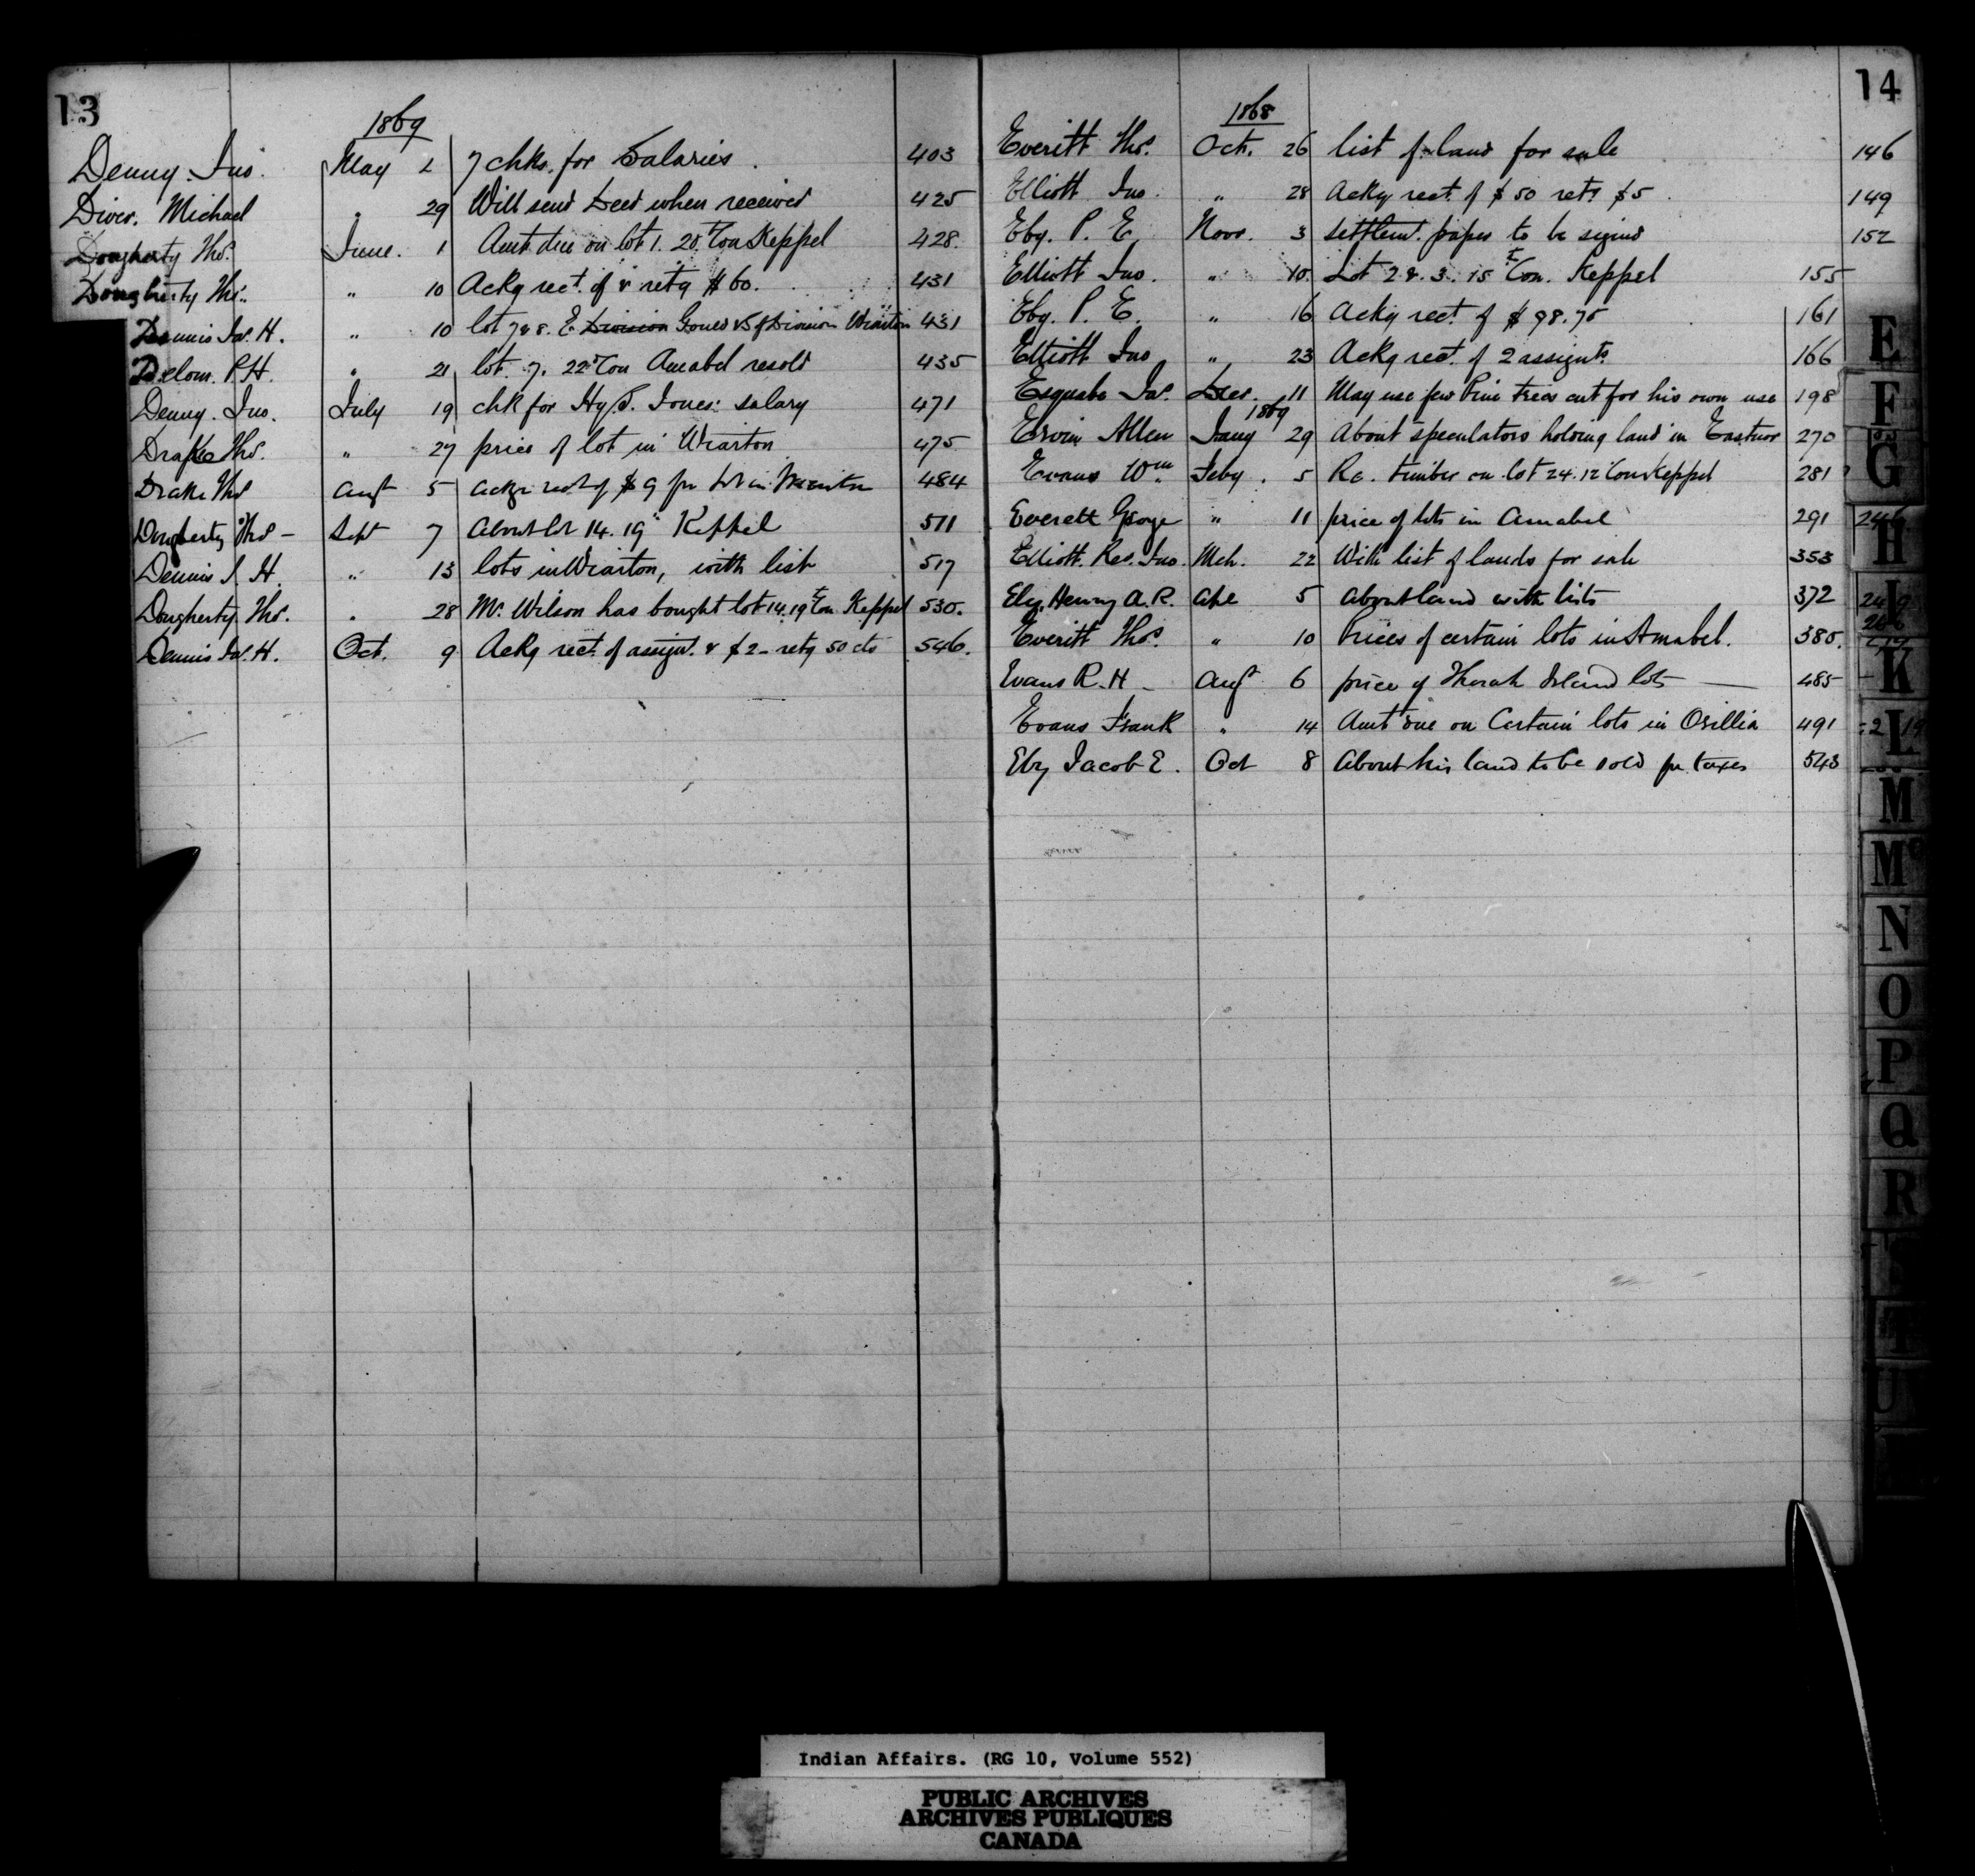 13
1869
Denny. Jno. May 2 7 chks. for Salaries. 403
Diver. Michael " 29 Will send Deed when received 425
Dougherty Thos. June. 1 Amt. due on lot 1. 20th Con Keppel 428.
Dougherty Thos. " 10 Ackg rect. of & retg $60. 431
Dennis Jas. H. " 10 lot 7 & 8. E. Division Goued & S of Division Wiarton 431
Delom. P.H. " 21 lot. 7. 22d Con Amabel resold 435
Denny. Jno. July 19 chk for Hy S. Jones' salary 471
Drake Thos. " 27 price of lot in Wiarton 475
Drake Thos Augt 5 ackg rect of $9 for lot in Wiarton 484
Dougherty Thos - Sept 7 About lot 14. 19th Keppel 511
Dennis J. H. " 13 lots in Wiarton, with list 517
Dougherty. Thos. " 28 Mr. Wilson has bought lot 14. 19th Con. Keppel 530.
Dennis Jas. H. Oct. 9 Ackg rect. of assignt. & $2 - retg 50 cts 546.
14
1868
Everitt Thos. Oct. 26 list of land for sale 146
Elliott Jno. " 28 Ackg rect. of $50 retg $5 149
Eby. P. E. Novr. 3 settlemt. papers to be signed 152
Elliott Jno. " 10. Lot 2 & 3. 15th Con. Keppel 155
Eby. P. E. " 16 Ackg rect. of $98.75 161
Elliott Jno " 23 Ackg rect. of 2 assignts. 166
Esquabe Jas. Decr. 11 May use few Pine trees cut for his own use 198
1869
Ervin Allen Jany 29 About speculators holding land in Eastnor 270
Evans Wm. Feby. 5 Re. timber on lot 24. 12 Con Keppel 281
Everett George " 11 price of lots in Amabel 291
Elliott. Rev. Jno. Mch. 22 With list of lands for sale 353
Ely. Henry A. R. Apl 5 about land with lists 372
Everitt Thos. " 10 Prices of certain lots in Amabel. 380.
Evans R. H - Augt 6 price of Thorah Island lots — 485
Evans Frank " 14 Amt due on Certain lots in Orillia 491
Eby Jacob E. Oct 8 About his land to be sold for taxes 543
E
F
G
H
I
K
L
M
Mc
N
O
P
Q
R
T
U
Indian Affairs. (RG 10, Volume 552)
PUBLIC ARCHIVES
ARCHIVES PUBLIQUES
CANADA